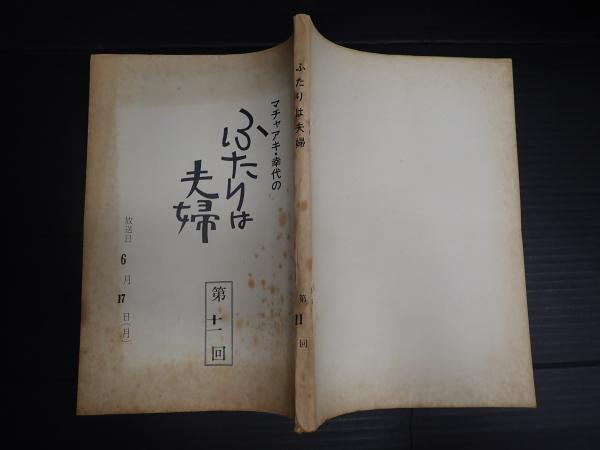 マチャアキ・幸代の
ふたりは
夫婦
第十一回
放送日 6月17日(月)
ふたりは夫婦 第11回